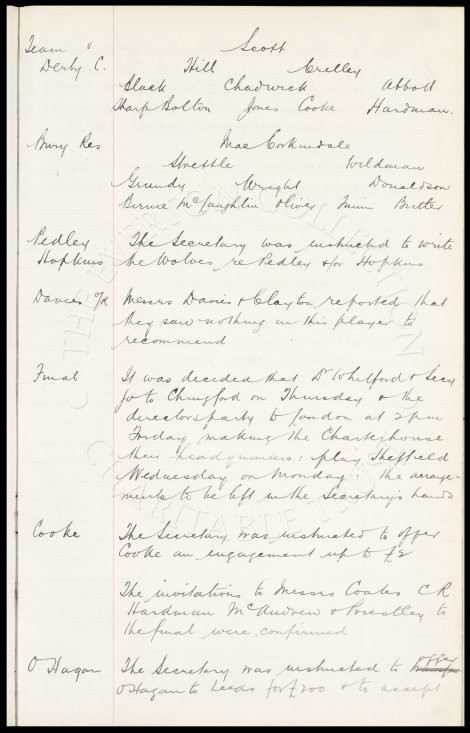 Team v Scott
Derby C. Hill Crelley
Black Chadwick Abbott
Sharp Bolton Jones Cooke Hardman.
Bury Res MacCorkindale
Strettle Wildman
Grundy Wright Donaldson
Birnie McLaughlin Oliver Butler
Pedley The Secretary was instructed to write
Hopkins the Wolves re Pedley &/or Hopkins
Davies Messrs Davies & Clayton reported that
they saw nothing in this player to
recommend
Final It was decided that Dr Whitford & Secy
go to Chingford on Thursday & the
directors party to London at 2 pm
Friday making the Charterhouse
their headquarters: play Sheffield
Wednesday on Monday: the arrange-
ments to be left in the Secretary's hands
Cooke The Secretary was instructed to offer
Cooke an engagement up to £2
The invitations to Messrs Coates CR
Hardman McAndrew & Priestley to
the final were confirmed
O'Hagan The Secretary was instructed to offer
O'Hagan to Leeds for £200 & to accept
THE EVERTON COLLECTION
CHARITABLE TRUST